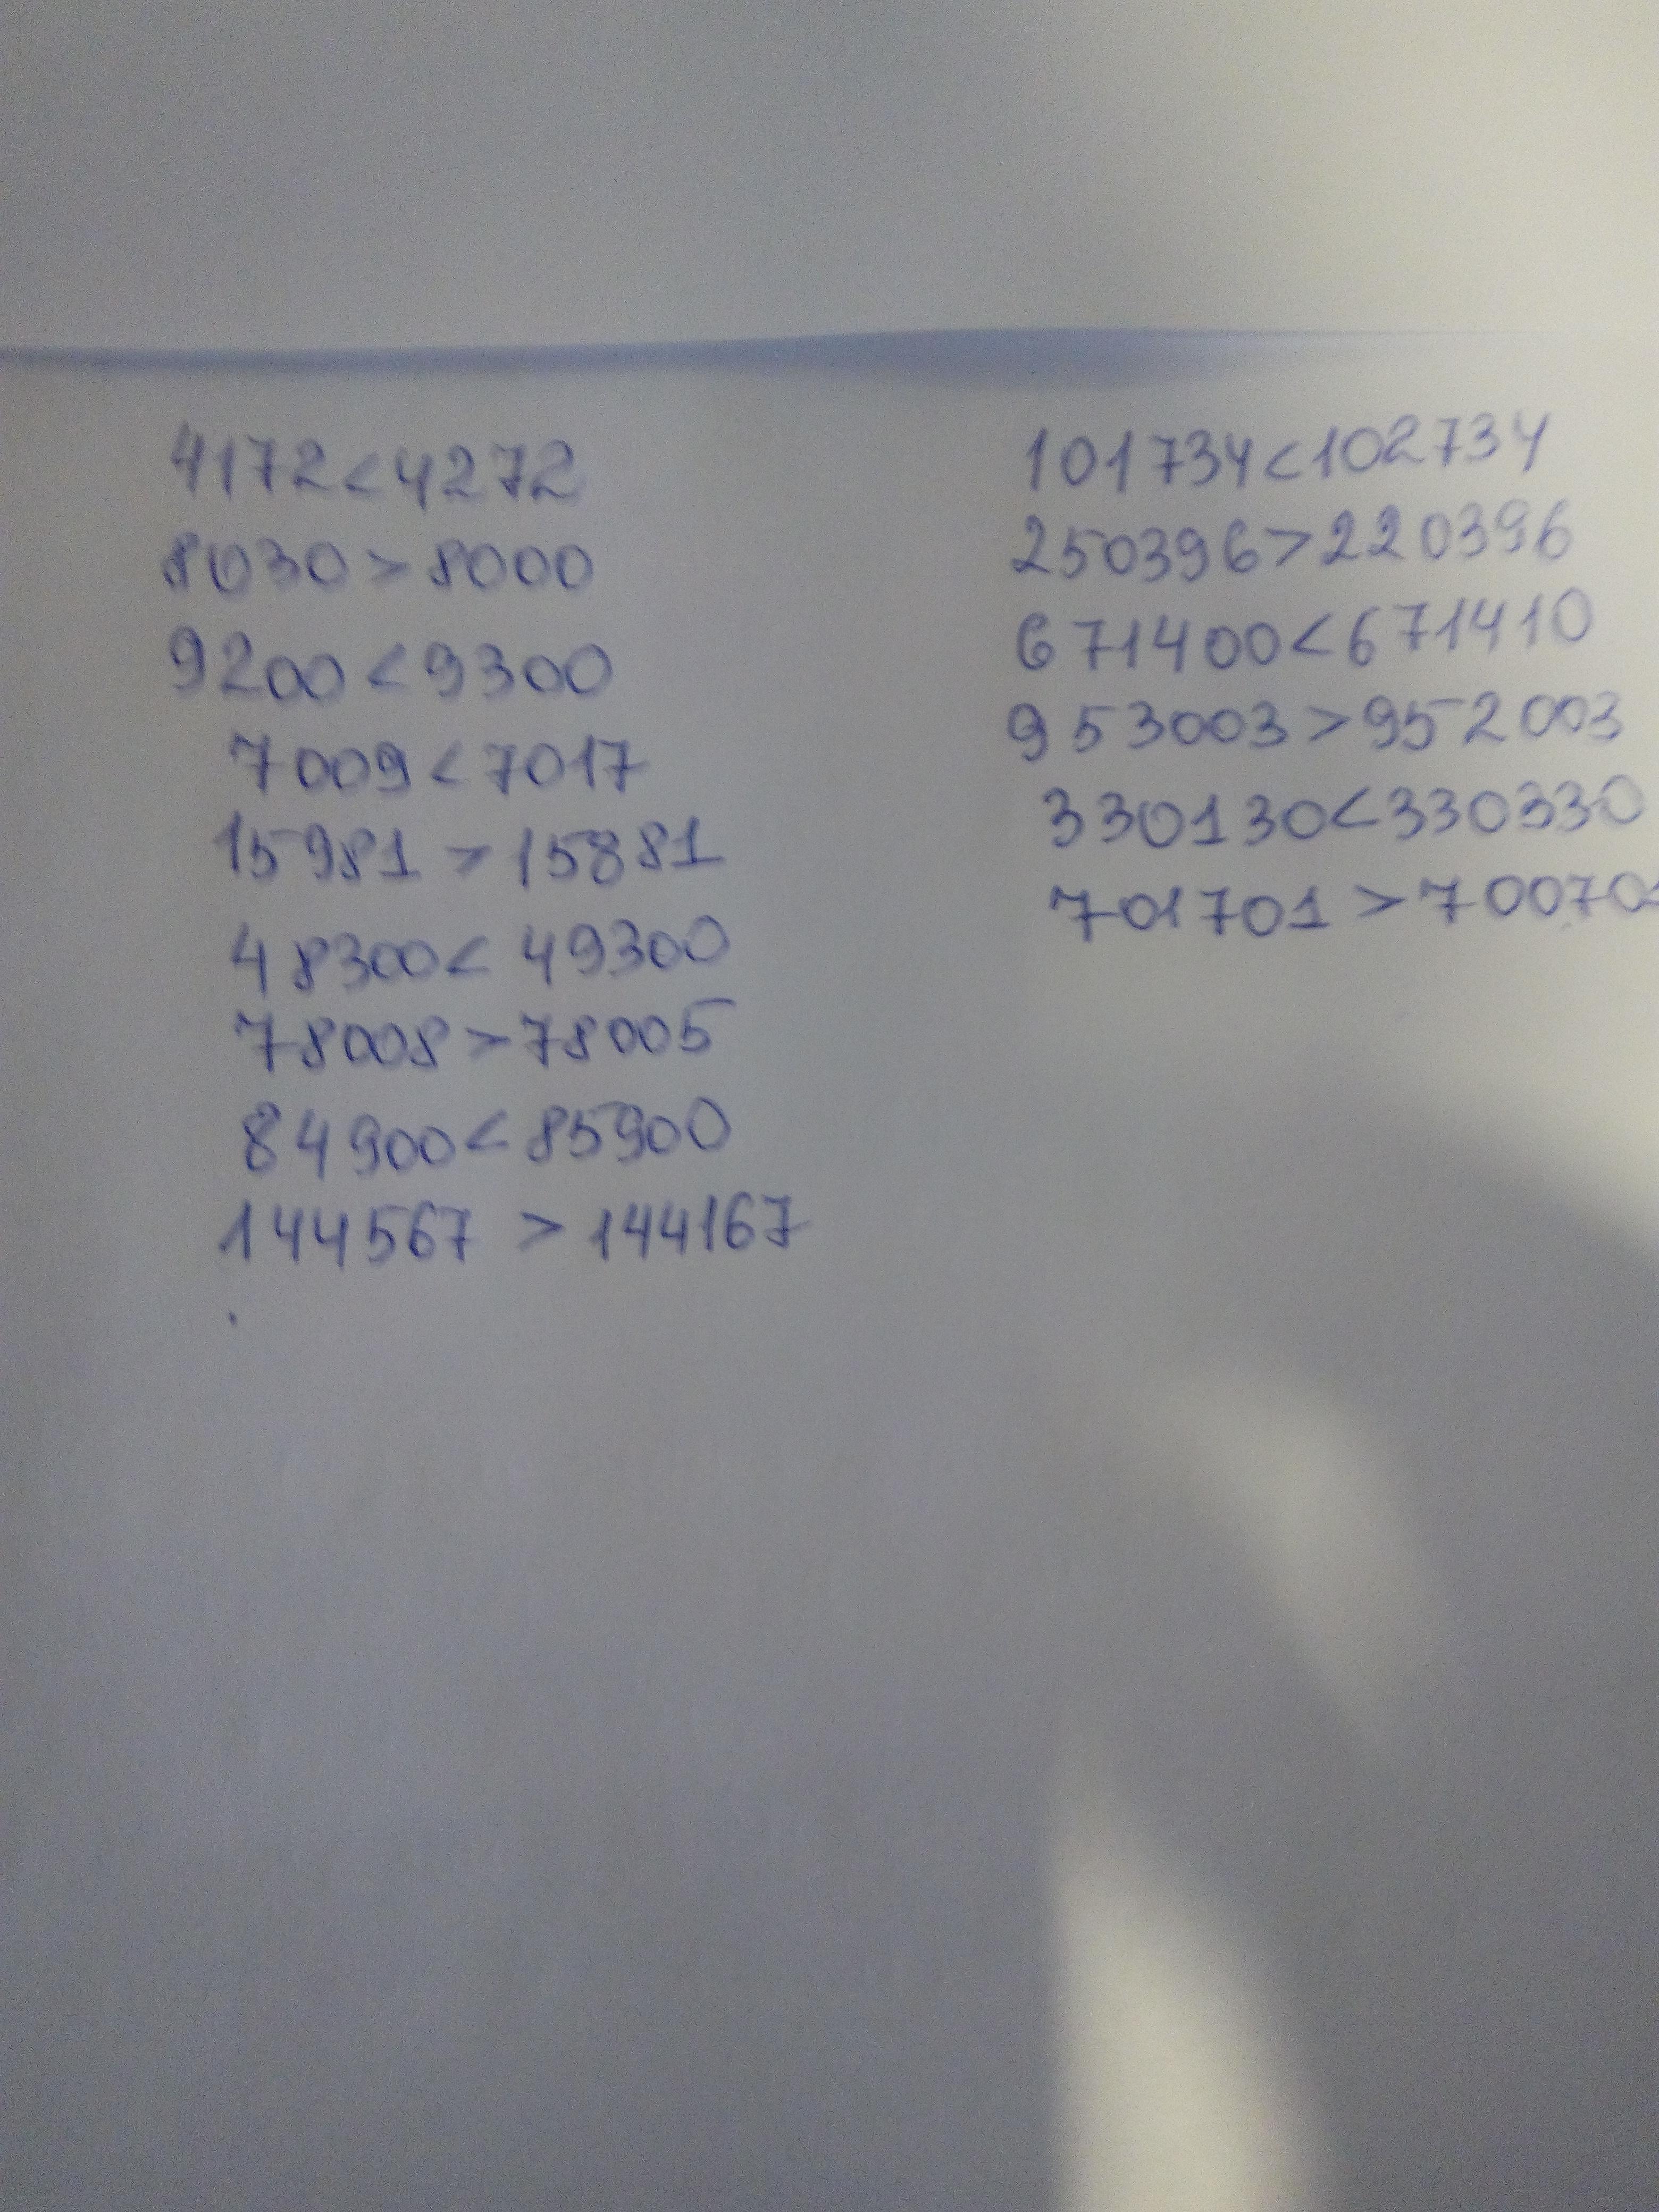 4172<4272
8030>8000
9200<9300
7009<7017
15981>15881
48300<49300
78008>78005
84900<85900
144567>144167
101734<102734
250396>220396
671400<671410
953003>952003
330130<330330
701701>700701